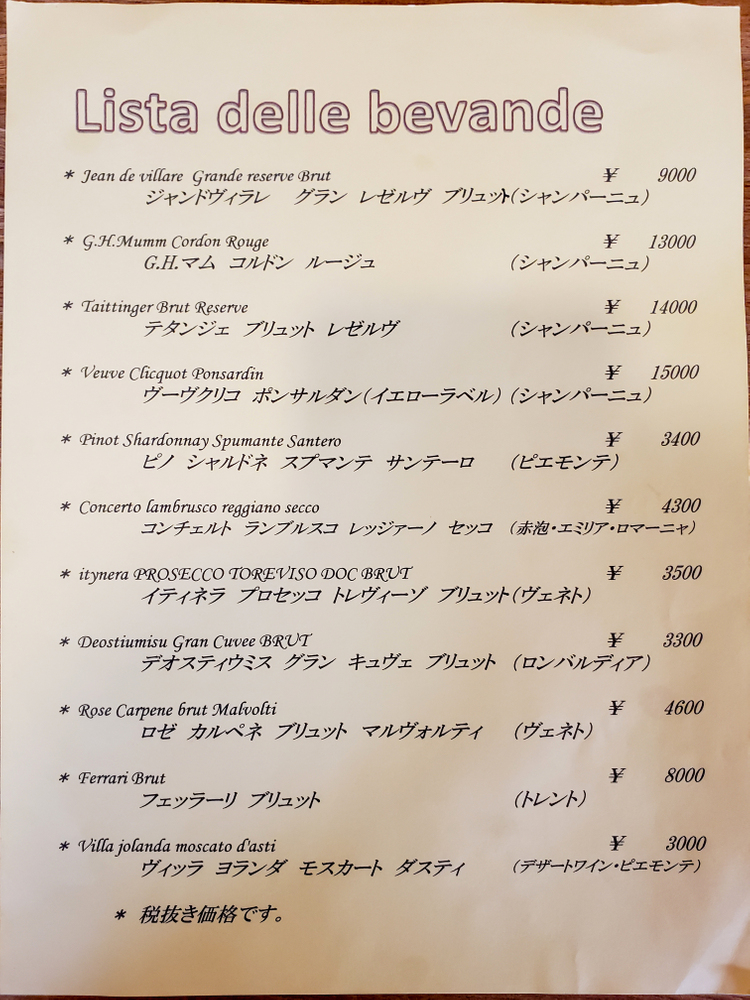 Lista delle bevande
* Jean de villare Grande reserve Brut ¥ 9000
ジャンドヴィラレ グラン レゼルヴ ブリュット(シャンパーニュ)
* G.H.Mumm Cordon Rouge ¥ 13000
G.H.マム コルドン ルージュ (シャンパーニュ)
* Taittinger Brut Reserve ¥ 14000
テタンジェ ブリュット レゼルヴ (シャンパーニュ)
* Veuve Clicquot Ponsardin ¥ 15000
ヴーヴクリコ ポンサルダン(イエローラベル) (シャンパーニュ)
* Pinot Shardonnay Spumante Santero ¥ 3400
ピノ シャルドネ スプマンテ サンテーロ (ピエモンテ)
* Concerto lambrusco reggiano secco ¥ 4300
コンチェルト ランブルスコ レッジァーノ セッコ (赤泡・エミリア・ロマーニャ)
* itynera PROSECCO TOREVISO DOC BRUT ¥ 3500
イティネラ プロセッコ トレヴィーゾ ブリュット(ヴェネト)
* Deostiumisu Gran Cuvee BRUT ¥ 3300
デオスティウミス グラン キュヴェ ブリュット (ロンバルディア)
* Rose Carpene brut Malvolti ¥ 4600
ロゼ カルペネ ブリュット マルヴォルティ (ヴェネト)
* Ferrari Brut ¥ 8000
フェッラーリ ブリュット (トレント)
* Villa jolanda moscato d'asti ¥ 3000
ヴィッラ ヨランダ モスカート ダスティ (デザートワイン・ピエモンテ)
* 税抜き価格です。